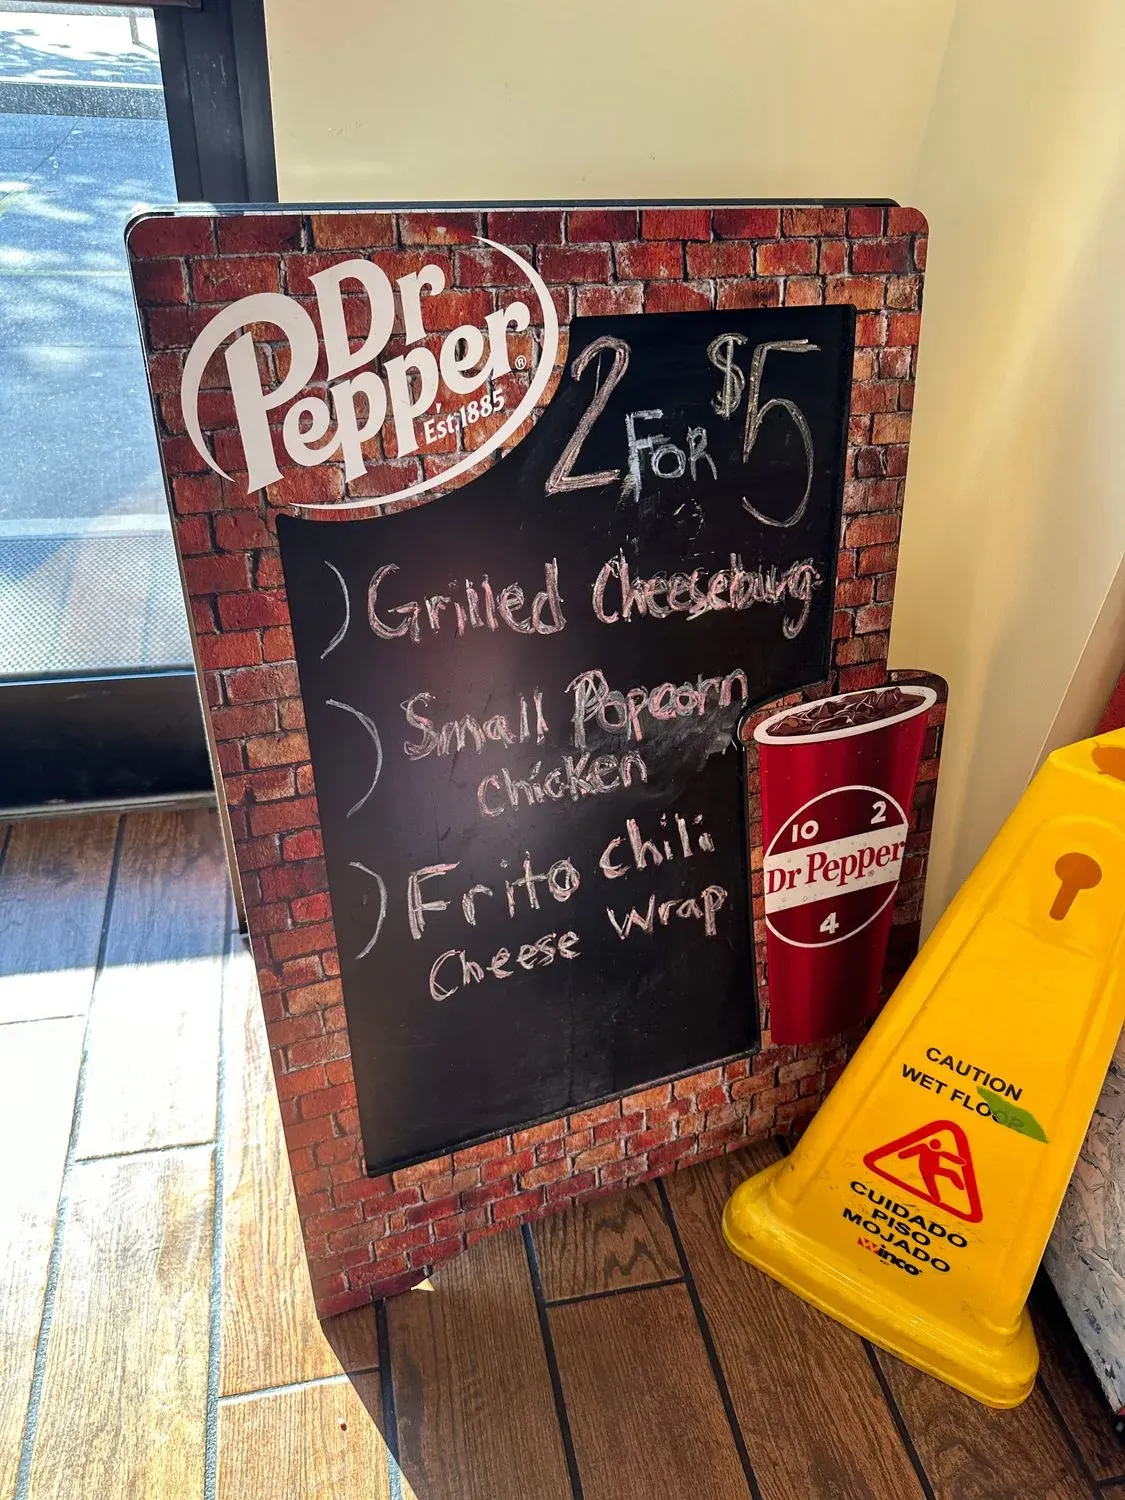 Dr
Pepper®
Est. 1885
2 FOR $5
) Grilled Cheeseburg
) Small Popcorn
Chicken
) Frito Chili
Cheese Wrap
10 2
Dr Pepper®
4
CAUTION
WET FLOOR
CUIDADO
PISO
MOJADO
Winco